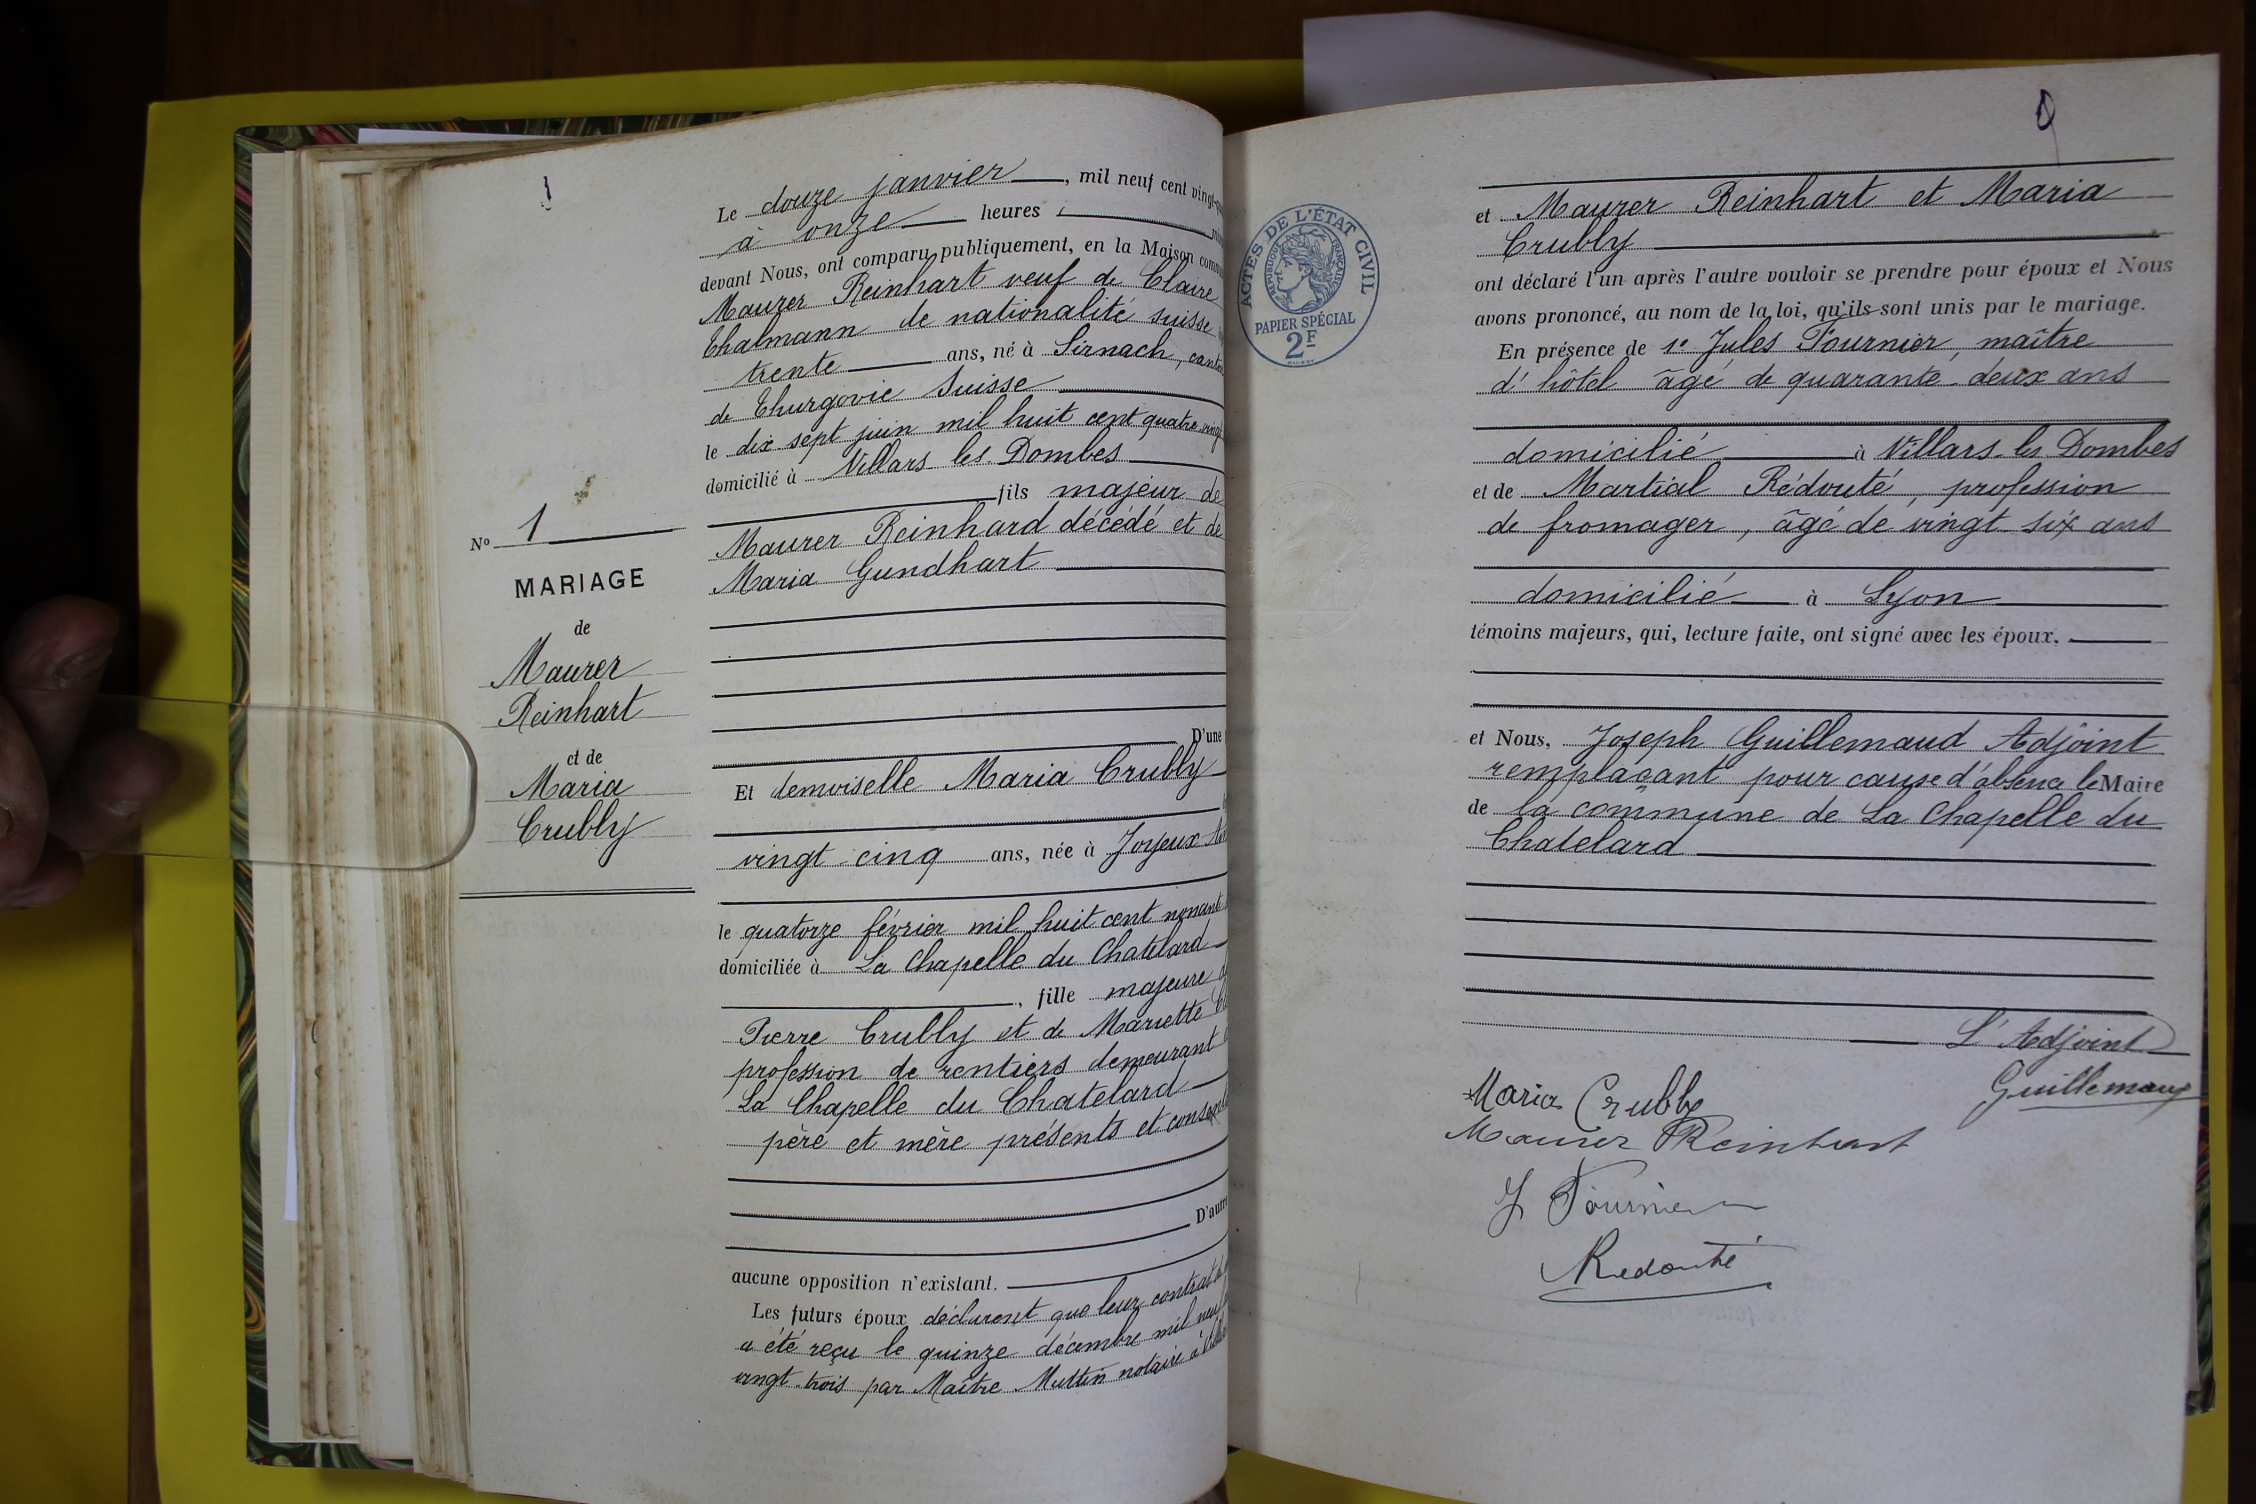 Le douze janvier, mil neuf cent vingt-
à onze heures
devant Nous, ont comparu publiquement, en la Maison
Maurer Reinhart veuf de Claire
Thalmann de nationalité suisse
trente ans, né à Sirnach, canton
de Thurgovie Suisse
le dix sept juin mil huit cent quatre vingt
domicilié à Villars les Dombes
fils majeur de
Maurer Reinhard décédé et de
Maria Gundhart
No 1
MARIAGE
de
Maurer
Reinhart
et de
Maria
Crubly
D'une
Et demoiselle Maria Crubly
vingt-cinq ans, née à Joyeux
le quatorze février mil huit cent nonante
domiciliée à La Chapelle du Chatelard
, fille majeure
Pierre Crubly et de Mariette
profession de rentiers demeurant
La Chapelle du Chatelard
père et mère présents et
D'autre
aucune opposition n'existant.
Les futurs époux déclarent que leur contrat
a été reçu le quinze décembre mil neuf
vingt-trois par Maître Muttin notaire à
ACTES DE L'ÉTAT CIVIL
RÉPUBLIQUE FRANÇAISE
PAPIER SPÉCIAL
2F
et Maurer Reinhart et Maria
Crubly
ont déclaré l'un après l'autre vouloir se prendre pour époux et Nous
avons prononcé, au nom de la loi, qu'ils sont unis par le mariage.
En présence de 1° Jules Fournier, maître
d'hôtel âgé de quarante-deux ans
domicilié à Villars-les Dombes
et de Martial Rédouté, profession
de fromager, âgé de vingt six ans
domicilié à Lyon
témoins majeurs, qui, lecture faite, ont signé avec les époux.
et Nous, Joseph Guillemaud Adjoint
remplaçant pour cause d'absence le Maire
de la commune de La Chapelle du
Chatelard
L'Adjoint
Guillemaud
Maria Crubly
Maurer Reinhart
J Fournier
Redouté